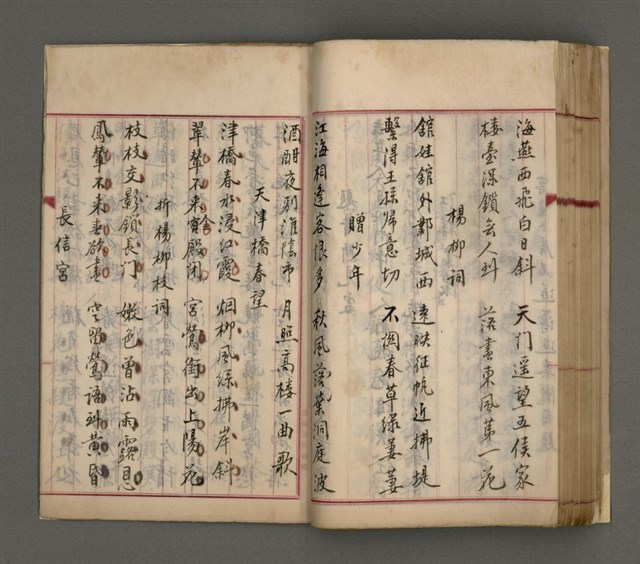 海燕西飛白日斜 天门遥望五侯家
楼臺深鎖无人到 落盡東風第一花
楊柳詞
舘娃舘外鄴城西 遠映征帆近拂堤
繫得王孫歸意切 不関春草绿萋萋
贈少年
江海相逢客恨多 秋風落葉洞庭波
酒酣夜别淮陰市 月照高楼一曲歌
天津橋春望
津橋春水浸红霞 烟柳風絲拂岸斜
翠輦不来宮殿閉 宮鶯銜出上陽花
金
折楊柳枝詞
枝枝交影鎖長门 嫩色曾沾雨露恩
鳳輦不来春欲盡 空留鶯語到黄昏
長信宮